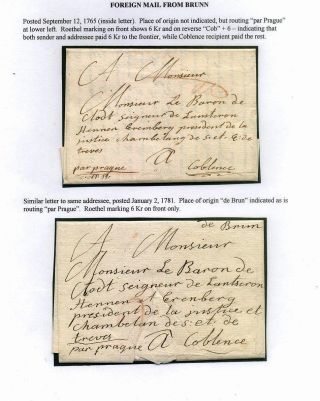 FOREIGN MAIL FROM BRUNN
Posted September 12, 1765 (inside letter). Place of origin not indicated, but routing "par Prague"
at lower left. Roethel marking on front shows 6 Kr and on reverse "Cob" + 6 – indicating that
both sender and addressee paid 6 Kr to the frontier, while Coblence recipient paid the rest.
A Monsieur
Monsieur Le Baron de
Clodt seigneur de Lantseron
Hennen Eremberg president de la
justice chambelang de s: et: E de
treves A
par prague Coblence
Similar letter to same addressee, posted January 2, 1781. Place of origin "de Brun" indicated as is
routing "par Prague". Roethel marking 6 Kr on front only.
de Brun
A Monsieur
Monsieur Le Baron de
Clodt Seigneur de Lantseron
Hennen et Erenberg
president de la justice et
Chambelan de s: et: de
treves
par prague a Coblence